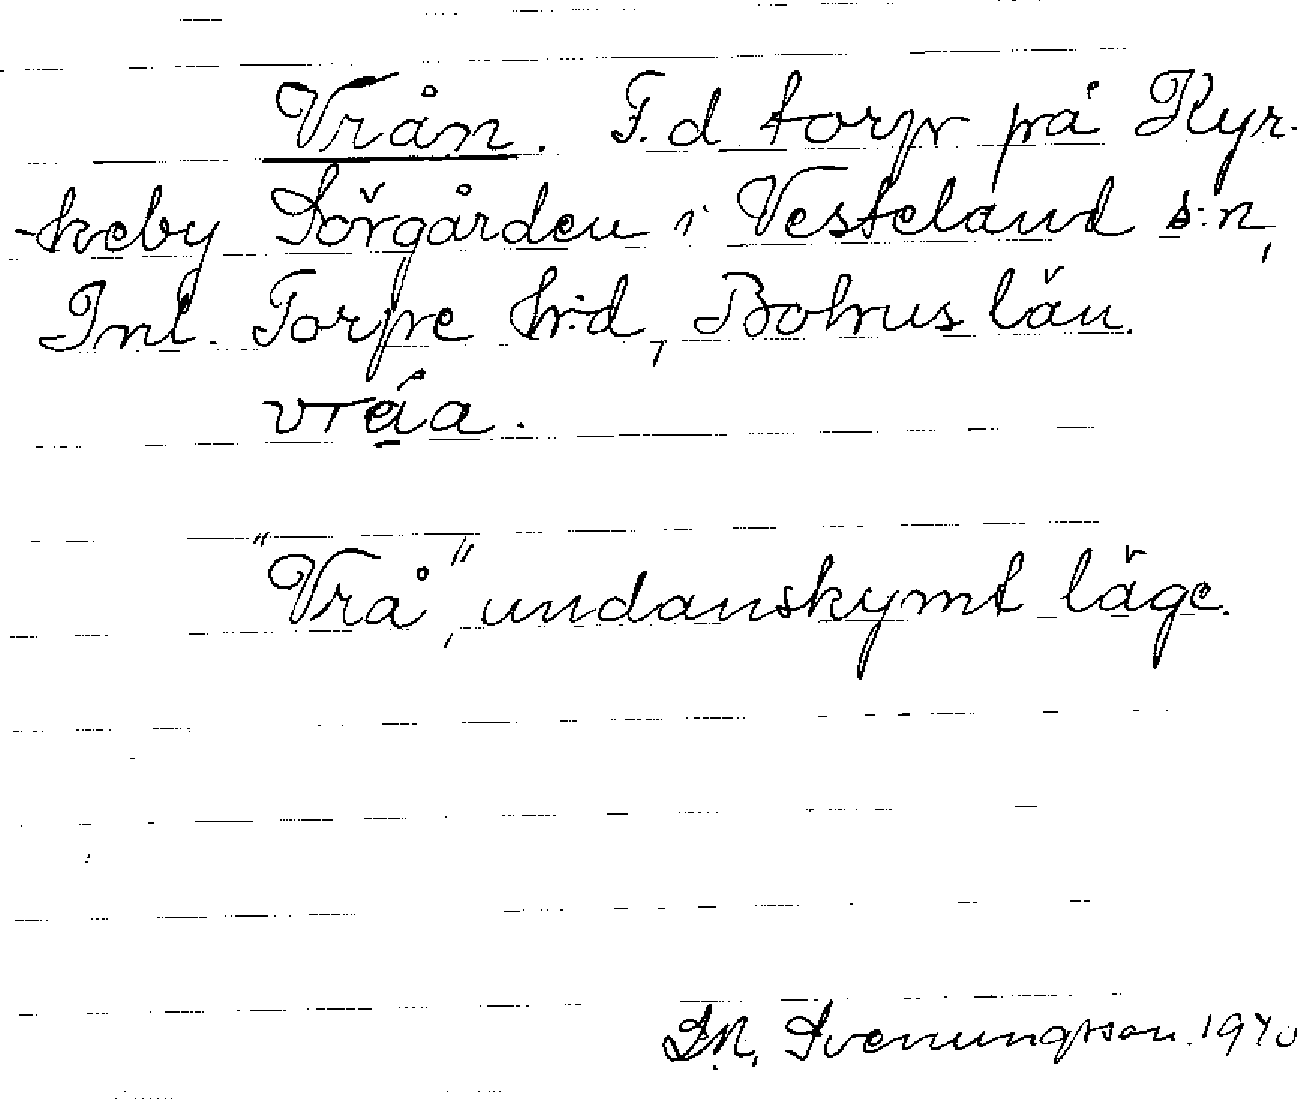 Vrån. F.d torp på Kyr-
-keby Sörgården i Vesteland s:n,
Inl. Torpe h:d, Bohus län.
vráa.
"Vrå", undanskymt läge.
Svenungsson. 1940